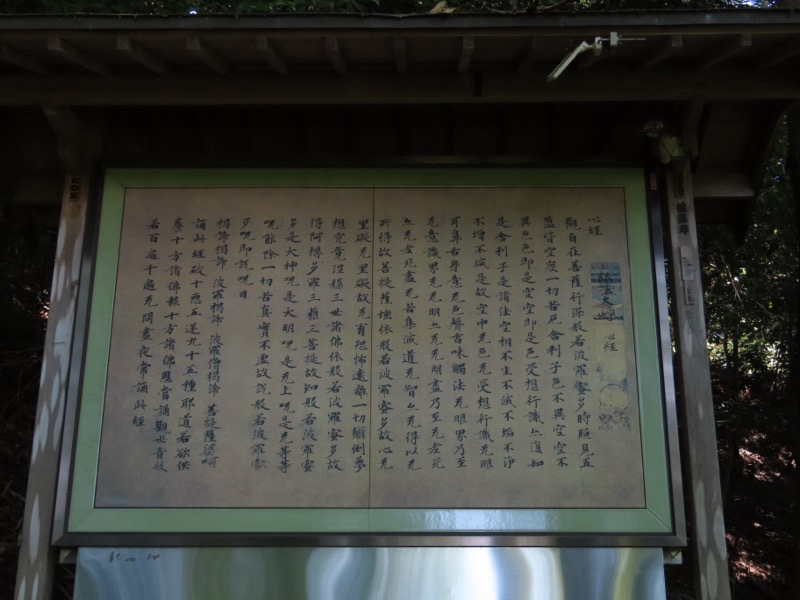 心経
觀自在菩薩行深般若波羅蜜多時照見五
蘊皆空度一切苦厄舍利子色不異空空不
異色色即是空空即是色受想行識亦復如
是舍利子是諸法空相不生不滅不垢不淨
不增不減是故空中无色无受想行識无眼
耳鼻舌身意无色聲香味觸法无眼界乃至
无意識界无无明亦无无明盡乃至无老死
亦无老死盡无苦集滅道无智亦无得以无
所得故菩提薩埵依般若波羅蜜多故心无
罣礙无罣礙故无有恐怖遠離一切顛倒夢
想究竟涅槃三世諸佛依般若波羅蜜多故
得阿耨多羅三藐三菩提故知般若波羅蜜
多是大神呪是大明呪是无上呪是无等等
呪能除一切苦真實不虛故說般若波羅蜜
多呪即說呪曰
揭諦揭諦 波羅揭諦 波羅僧揭諦 菩提薩婆呵
誦此經破十惡五逆九十五種耶道若欲供
養十方諸佛報十方諸佛恩當誦觀世音般
若百遍千遍无問晝夜常誦此經
弘法大師
心経